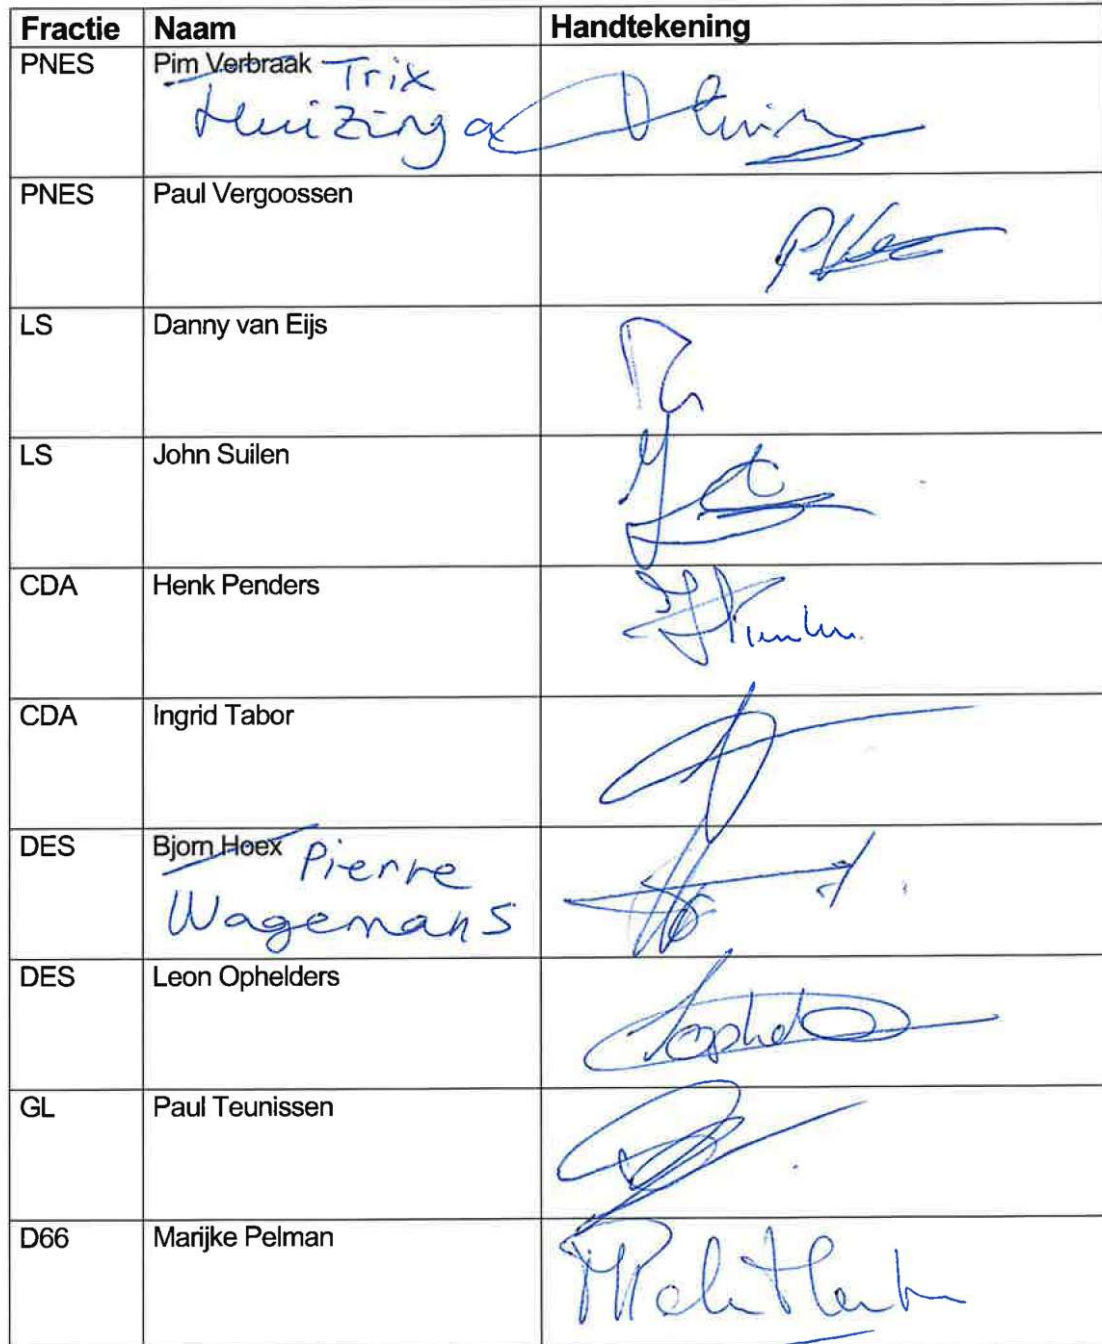 Fractie Naam Handtekening
PNES Pim Verbraak Trix
Huizinga
PNES Paul Vergoossen
LS Danny van Eijs
LS John Suilen
CDA Henk Penders
CDA Ingrid Tabor
DES Bjorn Hoex Pierre
Wagemans
DES Leon Ophelders
GL Paul Teunissen
D66 Marijke Pelman